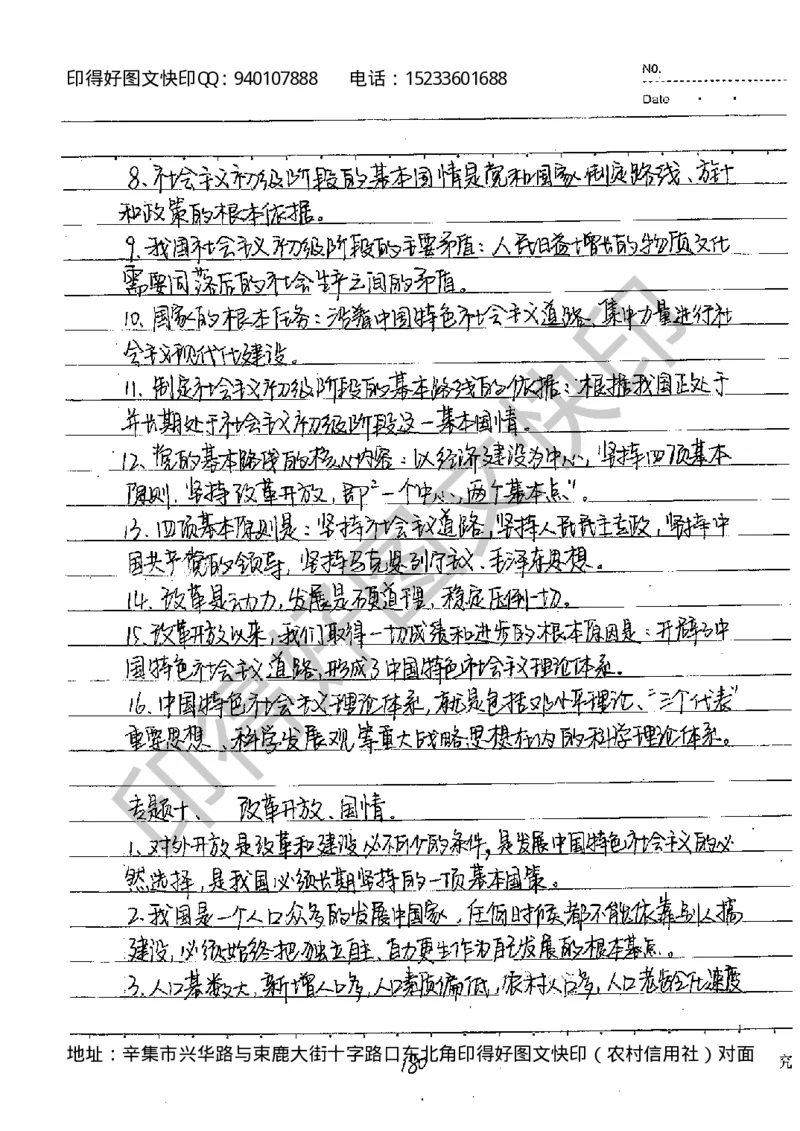 印得好图文快印QQ：940107888 电话：15233601688
NO.
Date
8、社会主义初级阶段的基本国情是党和国家制定路线、方针
和政策的根本依据。
9、我国社会主义初级阶段的主要矛盾：人民日益增长的物质文化
需要同落后的社会生产之间的矛盾。
10、国家的根本任务：沿着中国特色社会主义道路，集中力量进行社
会主义现代化建设。
11、制定社会主义初级阶段的基本路线的依据：根据我国正处于
并长期处于社会主义初级阶段这一基本国情。
12、党的基本路线的核心内容：以经济建设为中心，坚持四项基本
原则，坚持改革开放，即“一个中心，两个基本点”。
13、四项基本原则是：坚持社会主义道路，坚持人民民主专政，坚持中
国共产党的领导，坚持马克思列宁主义、毛泽东思想。
14、改革是动力，发展是硬道理，稳定压倒一切。
15、改革开放以来，我们取得一切成绩和进步的根本原因是：开辟了中
国特色社会主义道路，形成了中国特色社会主义理论体系。
16、中国特色社会主义理论体系，就是包括邓小平理论、“三个代表”
重要思想、科学发展观等重大战略思想在内的科学理论体系。
专题十、 改革开放、国情。
1、对外开放是改革和建设必不可少的条件，是发展中国特色社会主义的必
然选择，是我国必须长期坚持的一项基本国策。
2、我国是一个人口众多的发展中国家，任何时候都不能依靠别人搞
建设，必须始终把独立自主、自力更生作为自己发展的根本基点。
3、人口基数大，新增人口多，人口素质偏低，农村人口多，人口老龄化速度
地址：辛集市兴华路与束鹿大街十字路口东北角印得好图文快印（农村信用社）对面
180
究
印得好图文快印